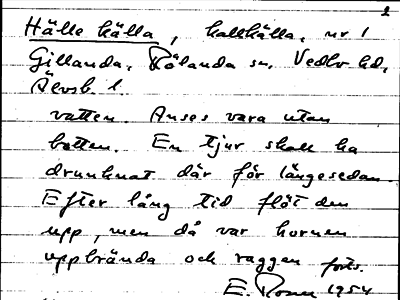 2
Hälle källa, kallkälla, nr 1
Gillanda, Rölanda sn, Vedbo hd,
Älvsb. l.
vatten. Anses vara utan
botten. En tjur skall ha
drunknat där för längesedan.
Efter lång tid flöt den
upp, men då var hornen
uppbrända och raggen forts.
E. 1954